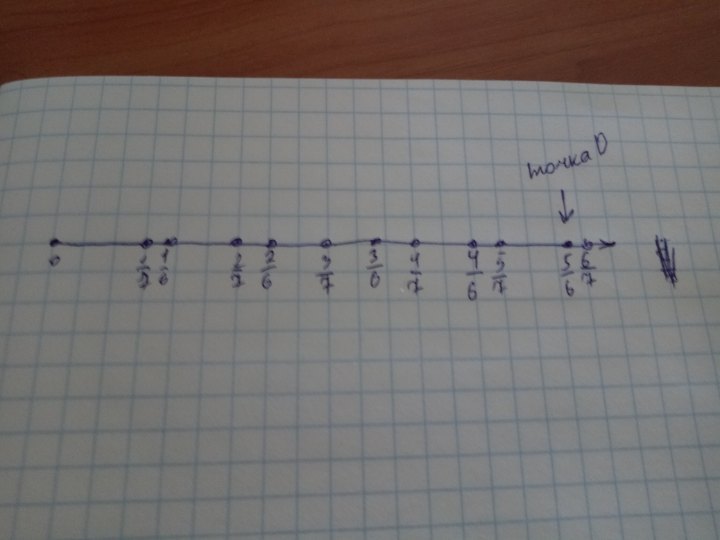 точка D
0 1/7 1/6 2/7 2/6 3/7 3/6 4/7 4/6 5/7 5/6 6/7